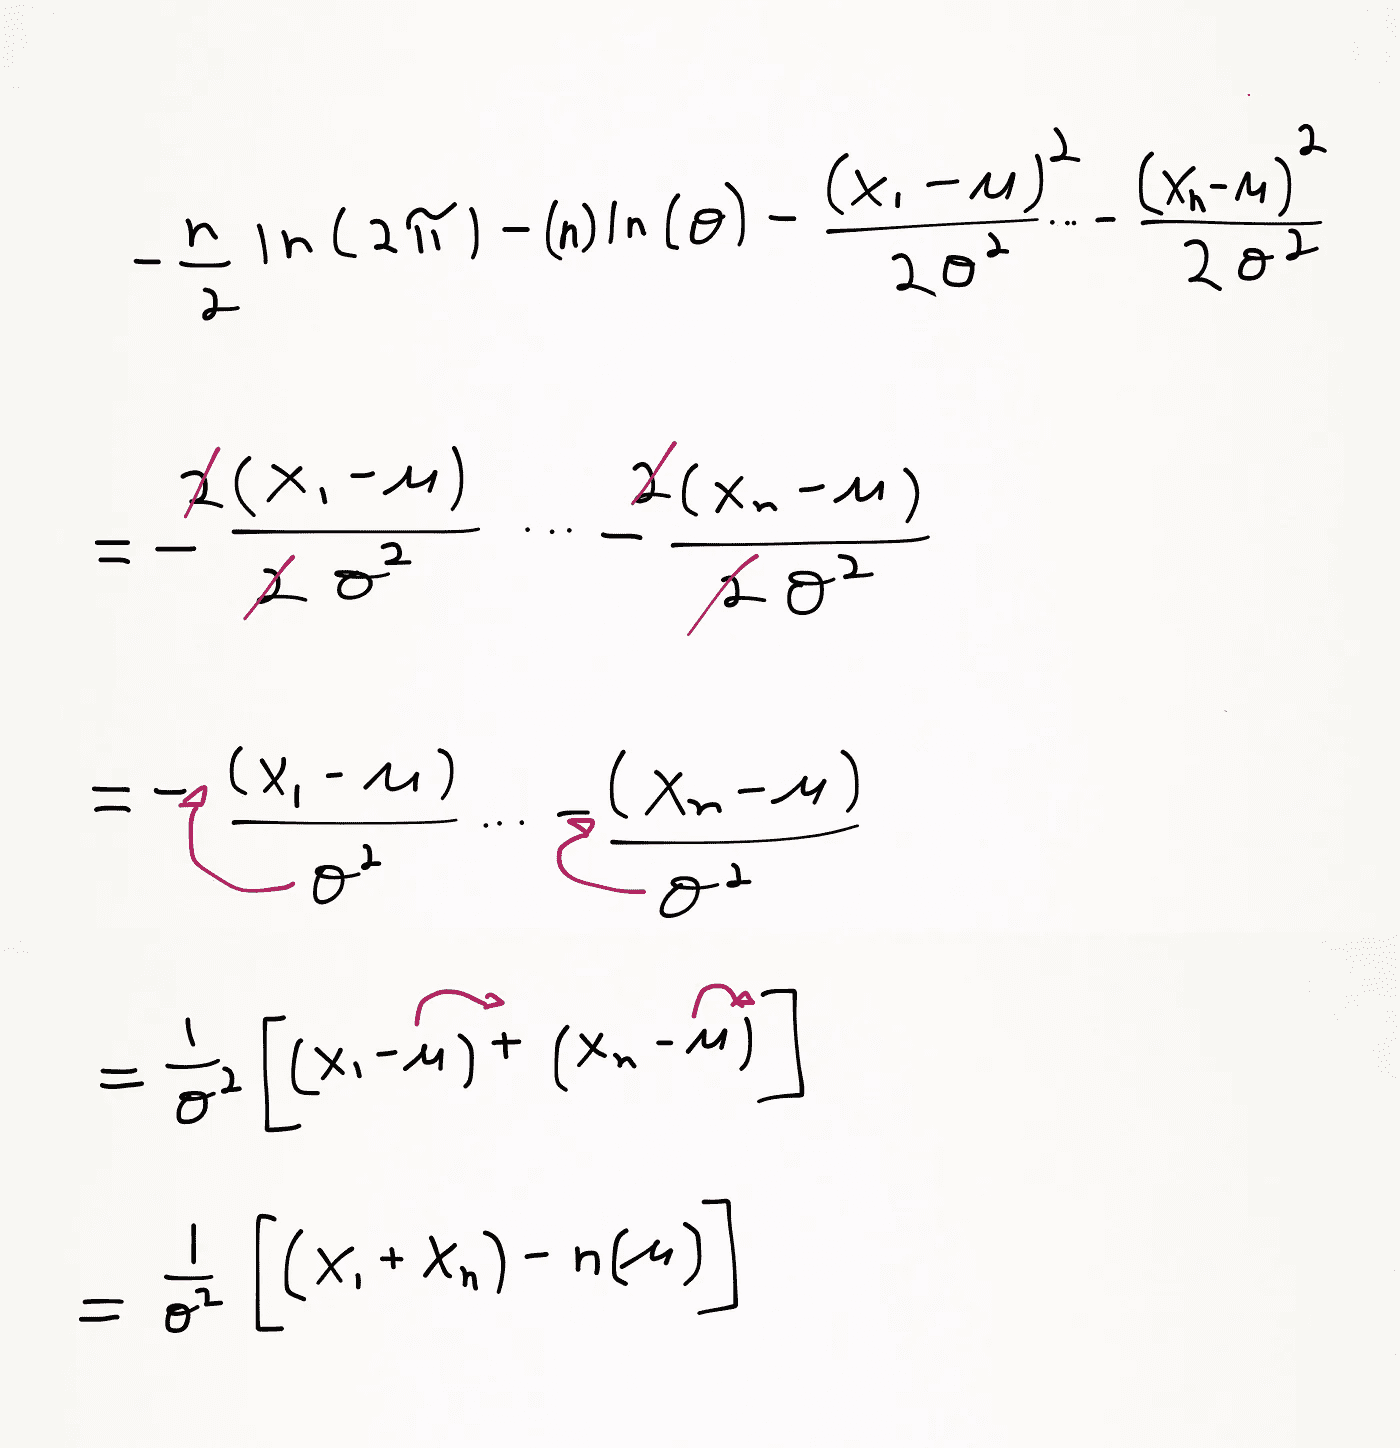 -n/2 ln(2π) - (n)ln(σ) - (x₁ - μ)²/2σ² ... - (xₙ - μ)²/2σ²
= - 2(x₁ - μ)/2σ² ... - 2(xₙ - μ)/2σ²
= - (x₁ - μ)/σ² ... - (xₙ - μ)/σ²
= 1/σ² [(x₁ - μ) + (xₙ - μ)]
= 1/σ² [(x₁ + xₙ) - n(μ)]